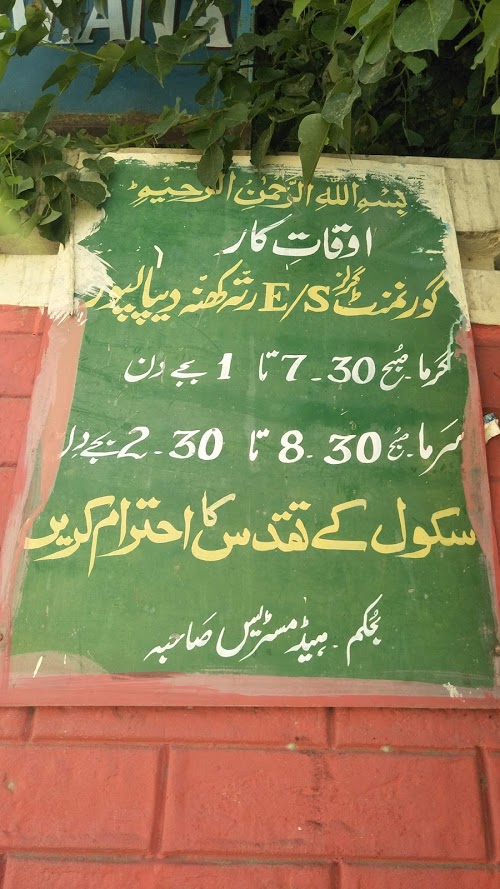 MANA
بِسْمِ اللهِ الرَّحْمٰنِ الرَّحِيْمِ
اوقاتِ کار
گورنمنٹ گرلز E/S رتہ کھنہ دیپالپور
گرما ۔ صُبح 7.30 تا 1 بجے دن
سرما ۔ صُبح 8.30 تا 2.30 بجے دن
سکول کے تقدس کا احترام کریں
بُحکم ۔ ہیڈ مسٹریس صَاحبہ